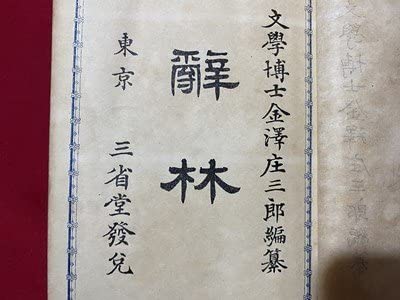 文學博士金澤庄三郎編纂
辭林
東京 三省堂發兌